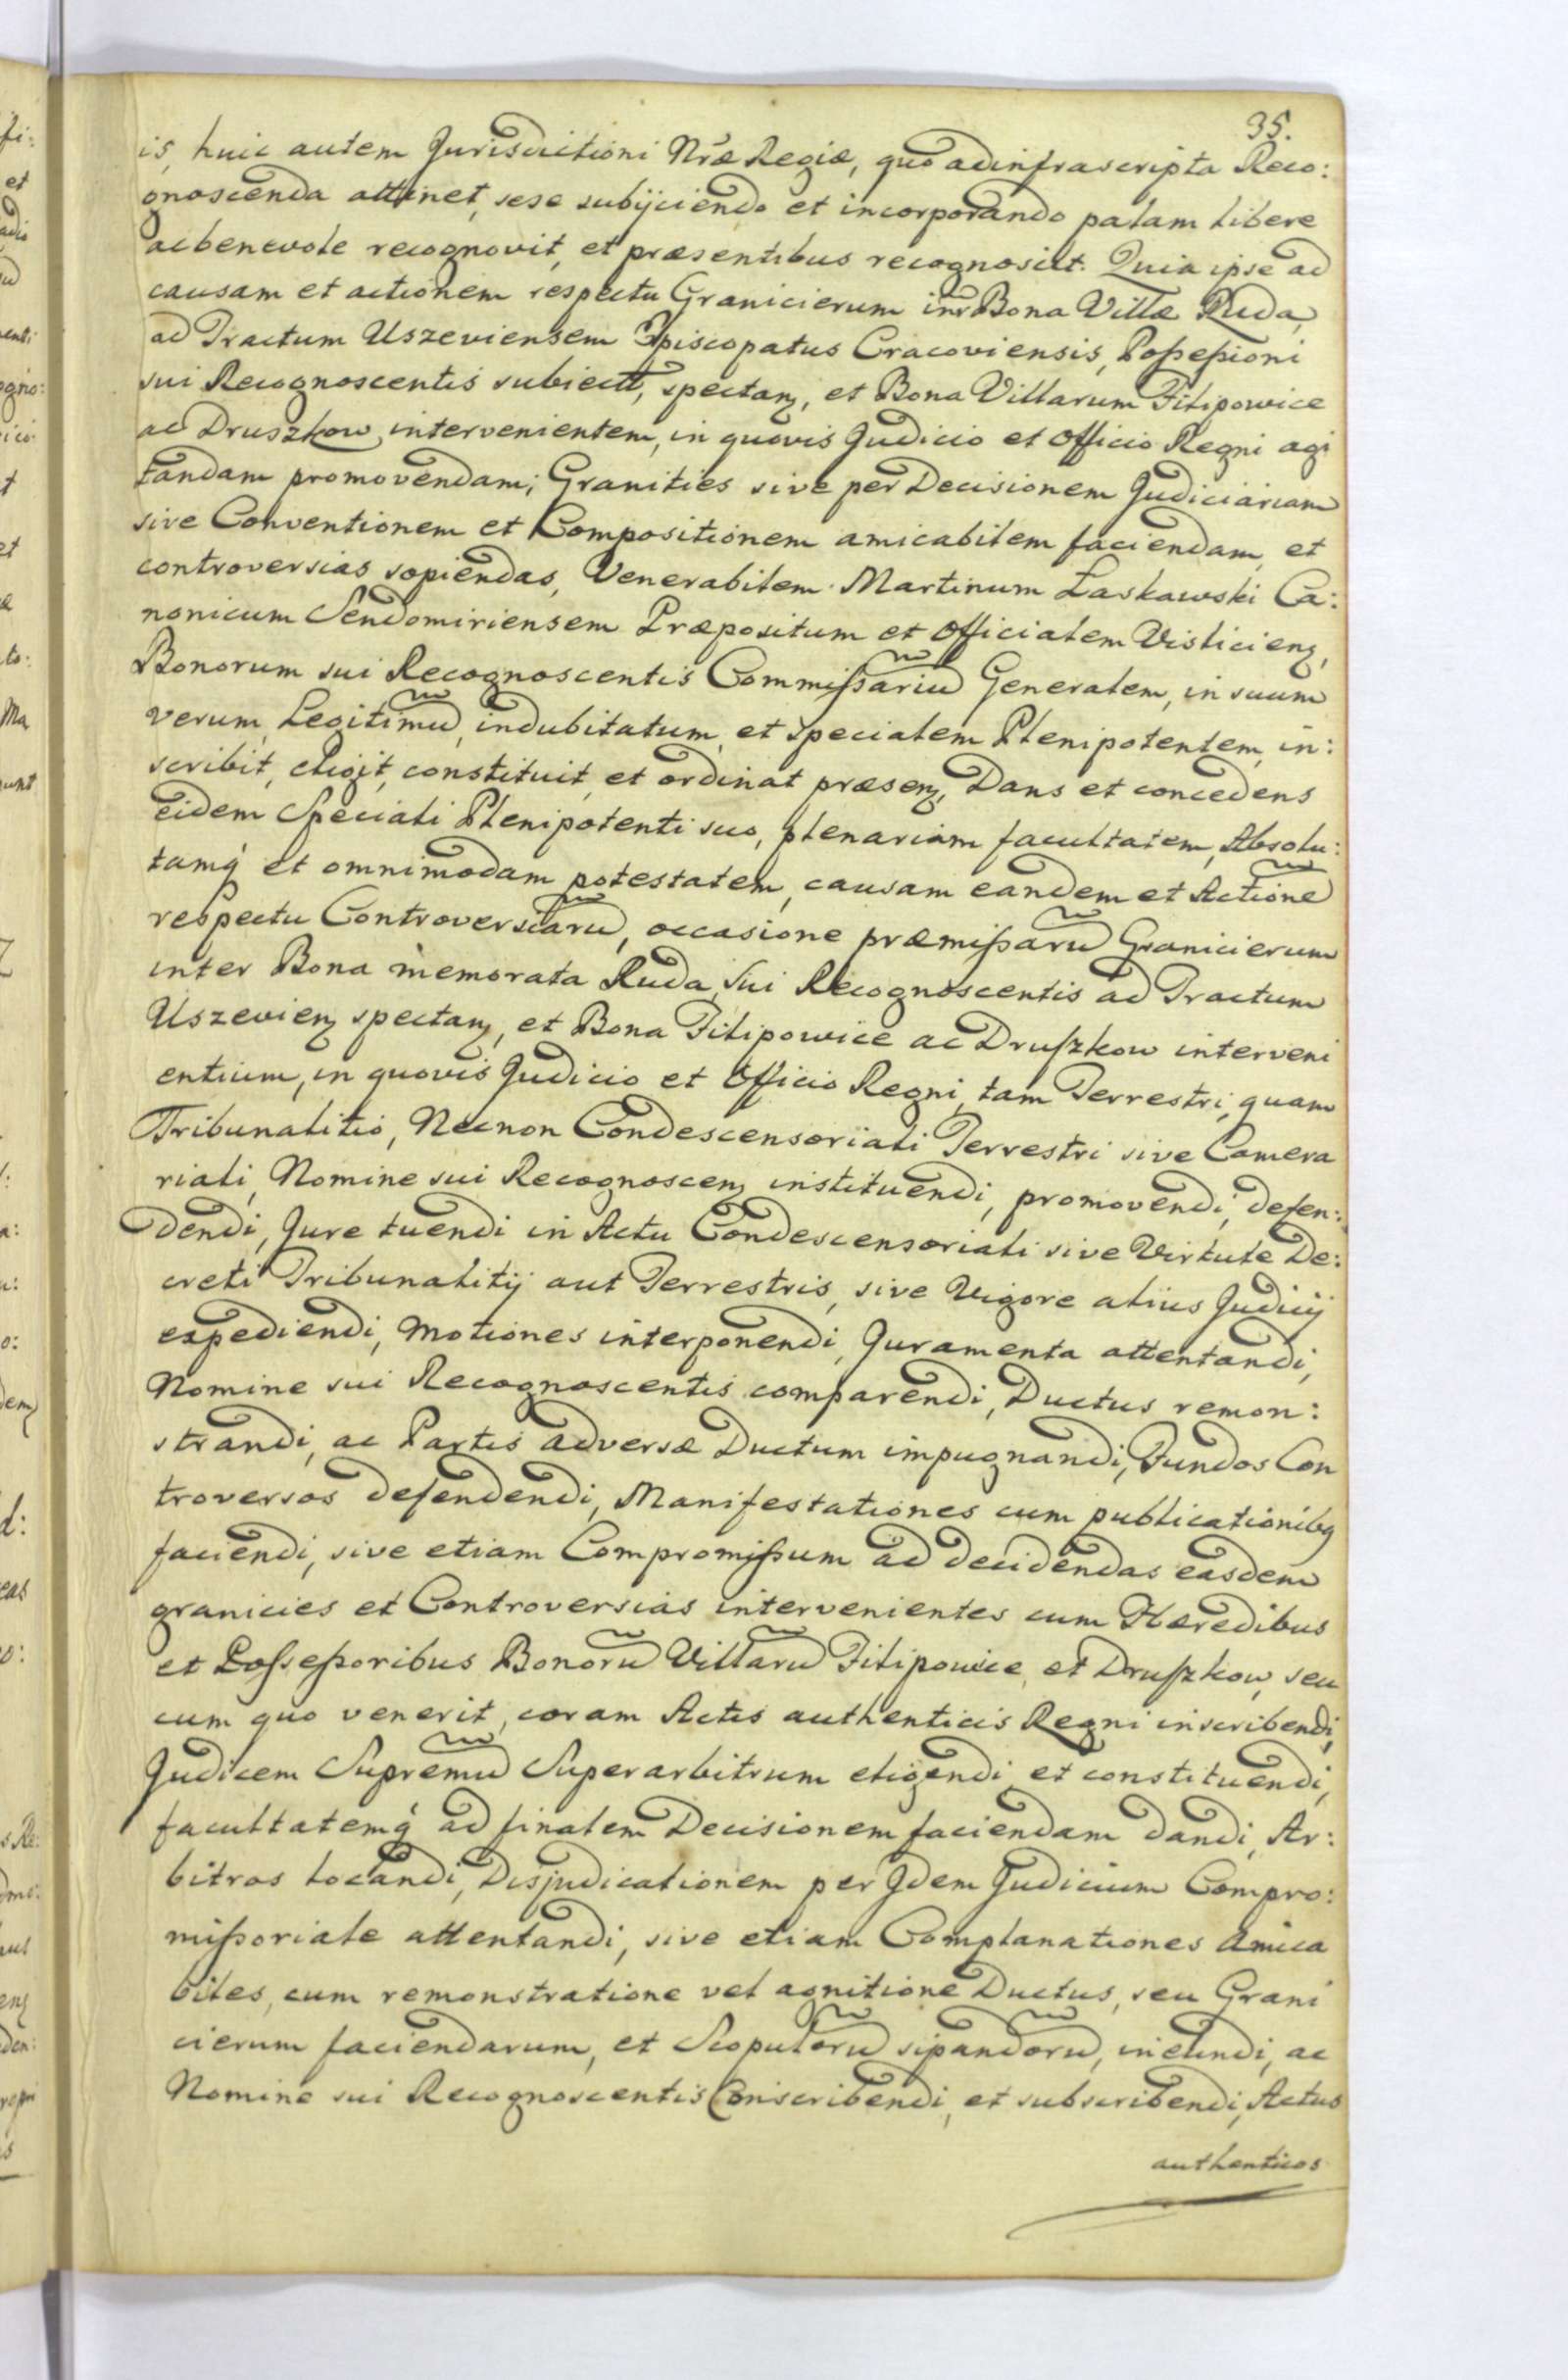 35.
is, huic autem Jurisdictioni Nr̃æ Regiæ, quo ad infrascripta Reco:
gnoscenda attinet, sese subijciendo et incorporando palam libere
ac benevole recognovit, et præsentibus recognoscit. Quia ipse ad
causam et actionem respectu Granicierum intr Bona Villæ Ruda,
ad Tractum Uszeviensem Episcopatus Cracoviensis, Poßeßioni
sui Recognoscentis subiectt, spectanz, et Bona Villarum Filipowice
ac Druszkow, intervenientem, in quovis Judicio et Officio Regni agi
tandam promovendam; Granities sive per Decisionem Judiciariam
sive Conventionem et Compositionem amicabilem faciendam, et
controversias sopiendas, Venerabilem Martinum Łaskawski Ca:
nonicum Sendomiriensem Præpositum et Officialem Visliciens,
Bonorum sui Recognoscentis Commißariũ Generalem, in suum
verum, Legitimũ, indubitatum, et specialem Plenipotentem, in:
scribit, eligit, constituit, et ordinat præsenz, Dans et concedens
eidem Speciali Plenipotenti suo, plenariam facultatem, Absolu:
tamq́ et omnimodam potestatem, causam eandem et Actionẽ
respectu Controversiarũ, occasione præmißarũ Granicierum
inter Bona memorata Ruda, sui Recognoscentis ad Tractum
Uszevienz spectanz, et Bona Filipowice ac Drußzkow interveni
entium, in quovis Judicio et Officio Regni, tam Terrestri, quam
Tribunalitio, Necnon Condescensoriali Terrestri sive Camera
riali, Nomine sui Recognoscenz instituendi, promovendi, defen:
dendi, Jure tuendi in Actu Condescensoriali sive Virtute De:
creti Tribunalitij aut Terrestris, sive Vigore alius Judicij
expediendi, Motiones interponendi, Juramenta attentandi,
Nomine sui Recognoscentis comparendi, Ductus remon:
strandi, ac Partis adversæ Ductum impugnandi, Fundos Con
troversos defendendi, Manifestationes cum publicationibg
faciendi, sive etiam Compromißum ad decidendas easdem
granicies et Controversias intervenientes cum Hæredibus
et Poßeßoribus Bonorũ Villarũ Filipowice, et Drußzkow, seu
cum quo venerit, coram Actis authenticis Regni inscribendi,
Judicem Supremũ Superarbitrum eligendi et constituendi,
facultatemq́ ad finalem Decisionem faciendam dandi, Ar:
bitros locandi, Disjudicationem per Jdem Judicium Compro:
mißoriale attentandi, sive etiam Complanationes Amica
biles, cum remonstratione vel agnitione Ductus, seu Grani
cierum faciendarum, et Scopulorũ sipandorũ, ineundi, ac
Nomine sui Recognoscentis Conscribendi, et subscribendi, Actus
authenticos